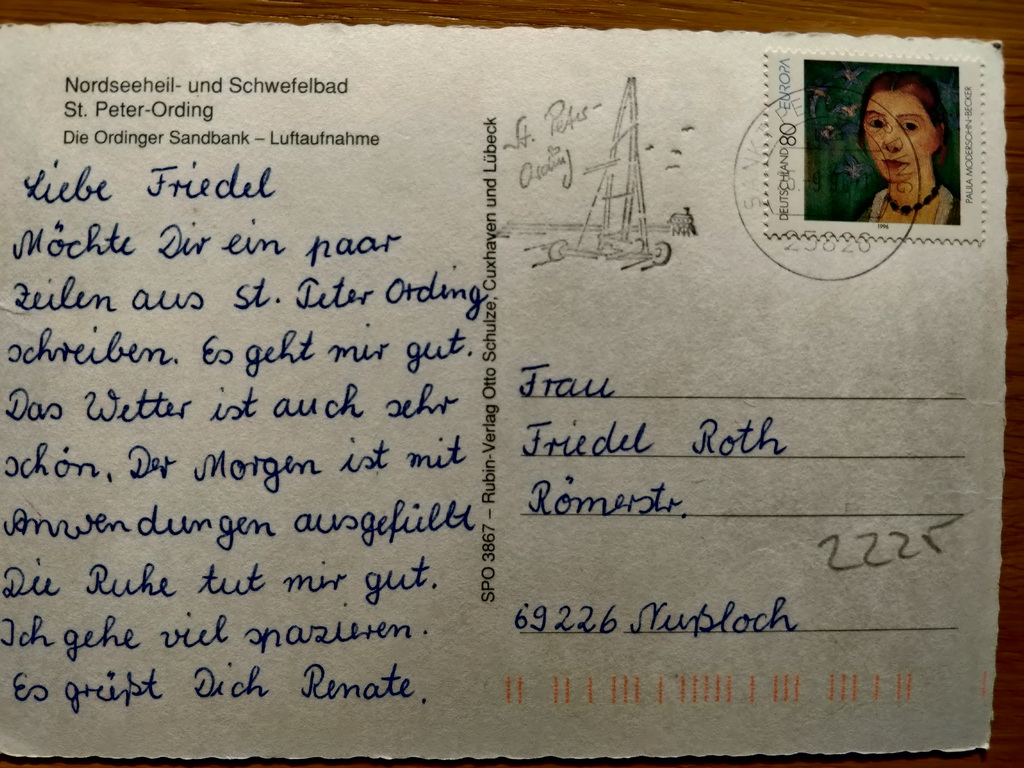 Nordseeheil- und Schwefelbad
St. Peter-Ording
Die Ordinger Sandbank – Luftaufnahme
Liebe Friedel
Möchte Dir ein paar
Zeilen aus St. Peter Ording
schreiben. Es geht mir gut.
Das Wetter ist auch sehr
schön. Der Morgen ist mit
Anwendungen ausgefüllt
Die Ruhe tut mir gut.
Ich gehe viel spazieren.
Es grüßt Dich Renate.
SPO 3867 – Rubin-Verlag Otto Schulze, Cuxhaven und Lübeck
St. Peter-
Ording
DEUTSCHLAND 80 EUROPA
PAULA MODERSOHN-BECKER
1996
25826
Frau
Friedel Roth
Römerstr.
2225
69226 Nußloch